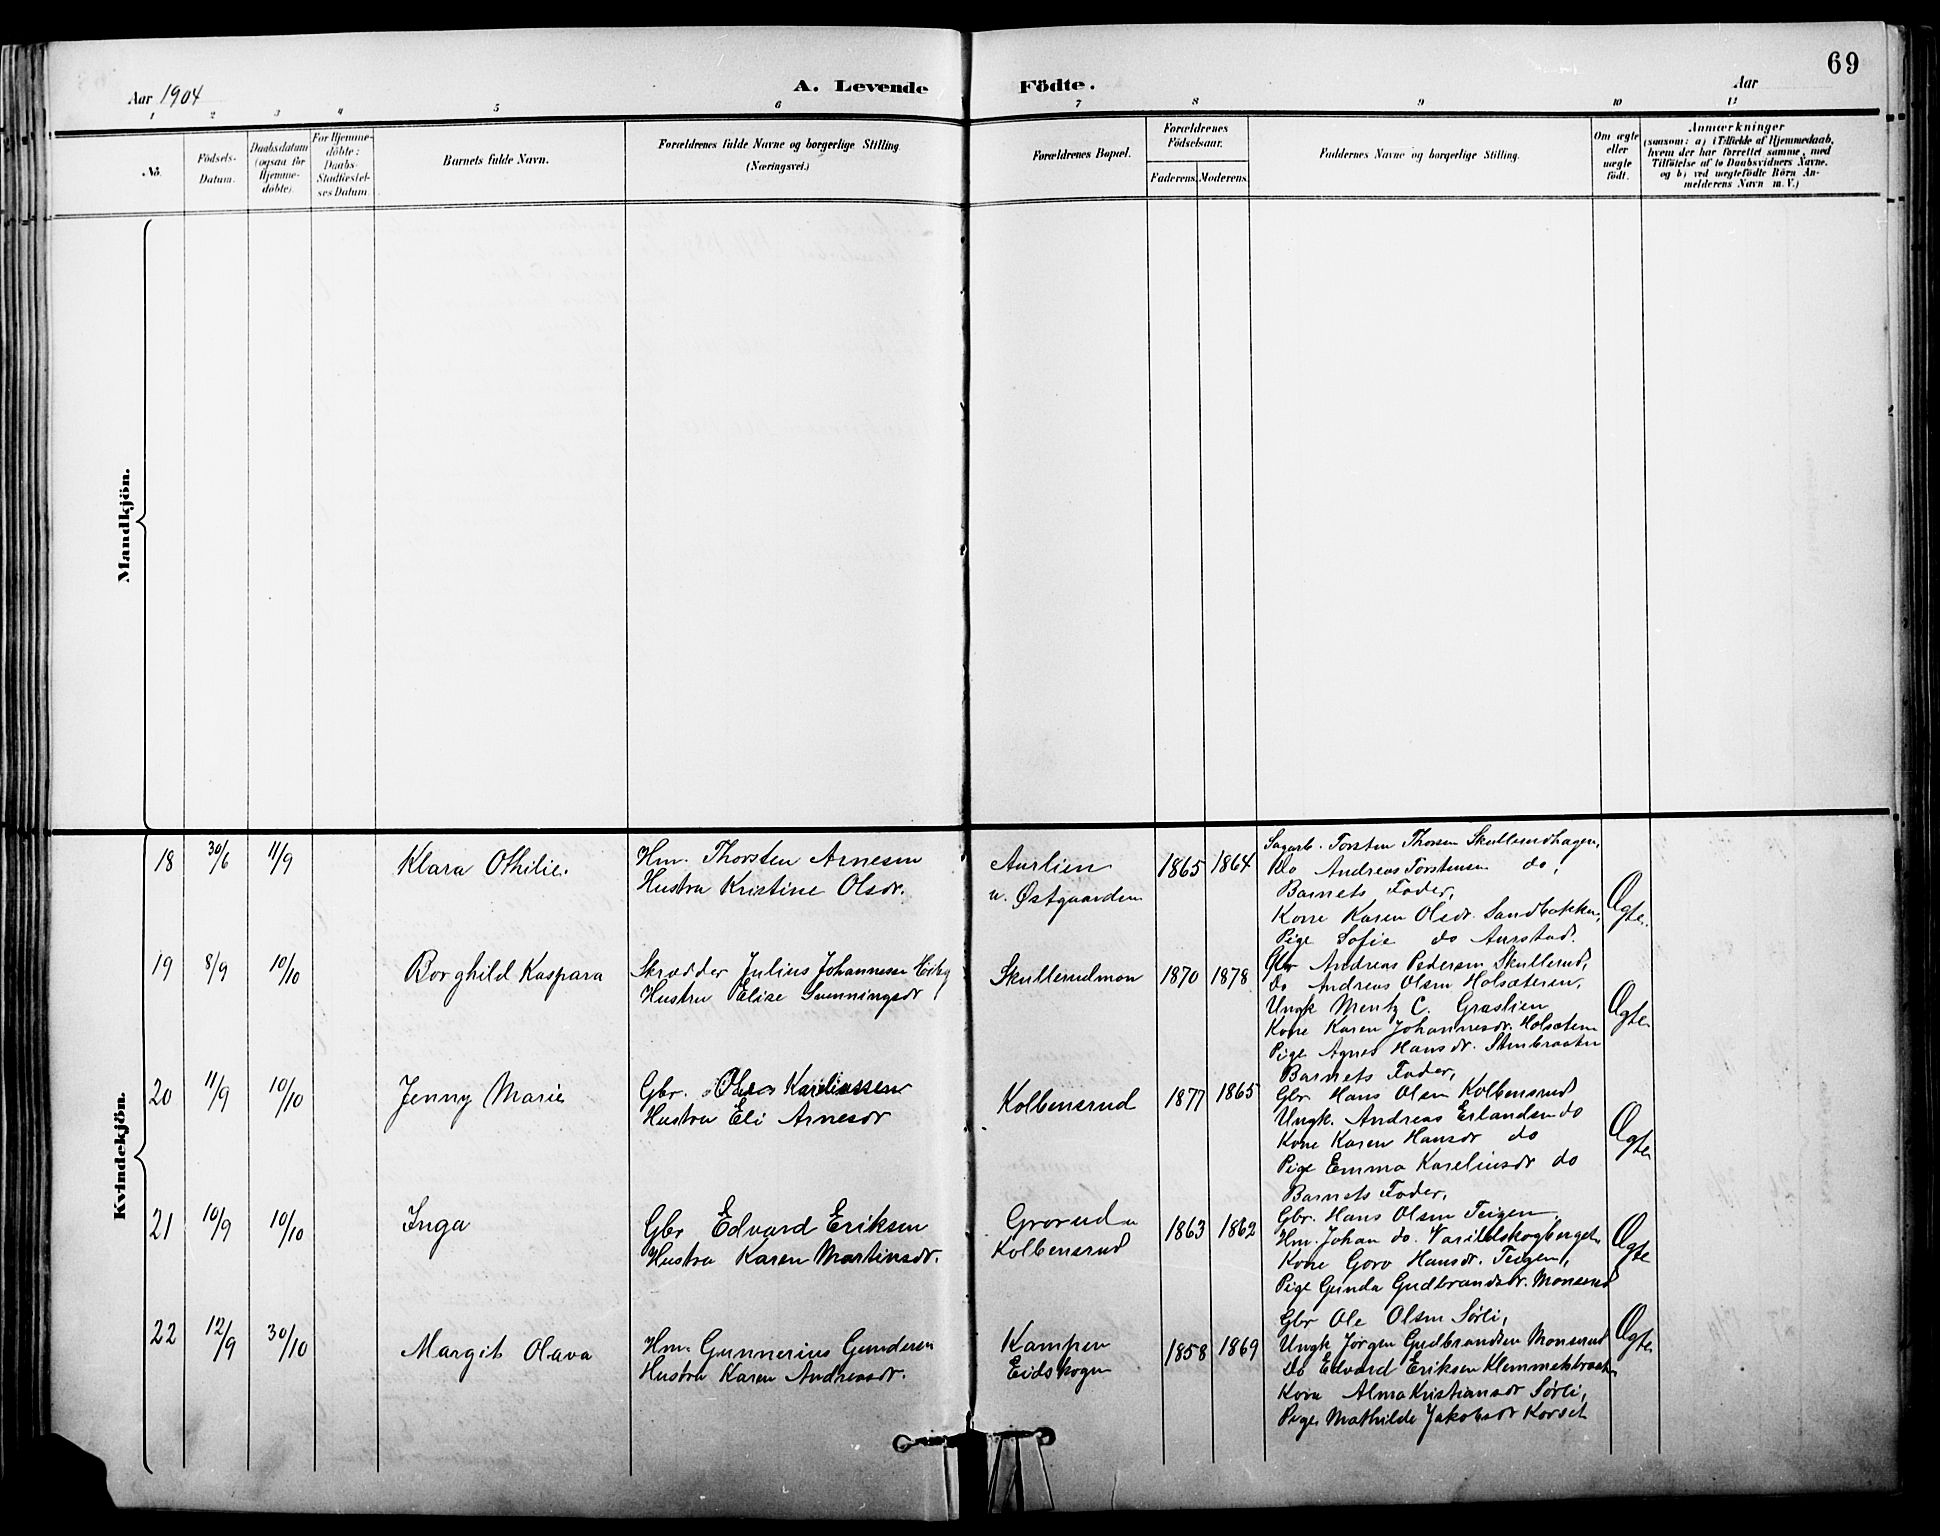 69
Aar 1904
A. Levende Födte.
Aar
1 2 3 4 5 6 7 8 9 10 11
No.
Födsels-Datum.
Daabsdatum (ogsaa for Hjemme-döbte).
For Hjemme-döbte: Daabs-Stadfæstel-ses Datum
Barnets fulde Navn.
Forældrenes fulde Navne og borgerlige Stilling (Næringsvei.)
Forældrenes Bopæl.
Forældrenes Födselsaar.
Faderens. Moderens.
Faddernes Navne og borgerlige Stilling.
Om ægte eller uægte födt.
Anmærkninger
(saasom: a) i Tilfælde af Hjemmedaab,
hvem der har forrettet samme, med
Tilföielse af to Daabsvidners Navne.
og b) ved uægtefödte Börn An-
melderens Navn m. V.)
Mandkjön.
Kvindekjön.
18 30/6 11/9 Klara Othilie.
Hm. Thorsten Arnesen
Hustru Kristine Olsdr.
Aurlien
u. Østgaarden
1865 1864
Sagarb. Torsten Thorsen Skullerudhagen,
Do Andreas Torstensen do,
Barnets Fader,
Kone Karen Olsdr. Sandbakken,
Pige Sofie do Aurstad.
Ægte.
19 8/9 10/10 Borghild Kaspara
Skrædder Julius Johannesen
Hustru Elise Gunningsdr
Skullerudmon
1870 1878
Gbr Andreas Pedersen Skullerud,
Do Andreas Olsen Holsæteren,
Ungk Mentz C. Græslien
Kone Karen Johannesdr. Holsæteren
Pige Agnes Hansdr. Stenbraaten
Ægte
20 11/9 10/10 Jenny Marie
Gbr. Olav Kareliussen
Hustru Eli Arnesdr
Kolbensrud
1877 1865
Barnets Fader,
Gbr Hans Olsen Kolbensrud
Ungk. Andreas Erlandsen do
Kone Karen Hansdr do
Pige Emma Kareliusdr do
Ægte
21 10/9 10/10 Inga
Gbr Edvard Eriksen
Hustru Karen Martinsdr.
Grorud u
Kolbensrud
1863 1862
Barnets Fader,
Gbr. Hans Olsen Teigen,
Hm. Johan do. Varildskogberget,
Kone Goro Hansdr. Teigen,
Pige Gunda Gudbrandsdr. Monsrud
Ægte
22 12/9 30/10 Margit Olava
Hm. Gunnerius Gundersen
Hustru Karen Andreasdr.
Kampen
Eidskogen
1858 1869
Gbr Ole Olsen Sørli,
Ungk Jørgen Gudbrandsen Monsrud
Do Edvard Eriksen Klemmetsbraaten
Kone Alma Kristiansdr Sørli,
Pige Mathilde Jakobsdr Korset
Ægte